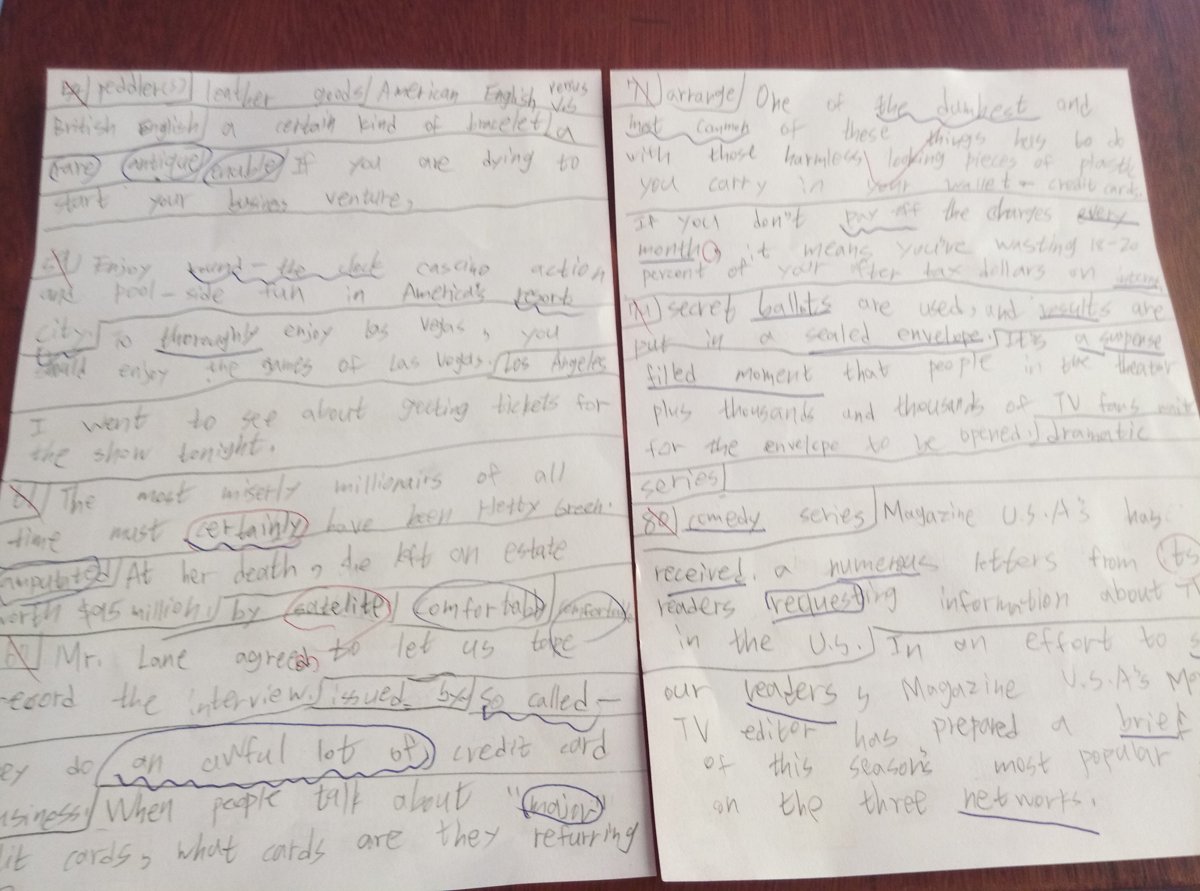 peddler(s) leather goods American English versus
British English a certain kind of bracelet a
rare antique enable If you are dying to
start your business venture,
Enjoy round-the-clock cascino action
and pool-side fun in America's resort
city. To thoroughly enjoy las vegas, you
should enjoy the games of Las Vegas. Los Angeles
I went to see about getting tickets for
the show tonight.
The most miserly millionairs of all
time must certainly have been Hetty Green.
amputated At her death, she left an estate
worth $95 million. by satelite comfortably
Mr. Lane agreed to let us tape
record the interview. issued by so called-
do an awful lot of credit card
business. When people talk about "major"
cards, what cards are they refurring
arrange One of the dumbest and
most common of these things has to do
with those harmless looking pieces of plastic
you carry in your wallet - credit cards.
If you don't pay off the charges every
month, it means you're wasting 18-20
percent of your after tax dollars on
secret ballots are used, and results are
put in a sealed envelope. It's a suspense
filled moment that people in the theator
plus thousands and thousands of TV fans wait
for the envelope to be opened. dramatic
series
80 comedy series Magazine U.S.A's has
received a numerous letters from its
readers requesting information about
in the U.S. In an effort to
our readers, Magazine U.S.A's
TV editor has prepared a brief
of this season's most popular
on the three networks.